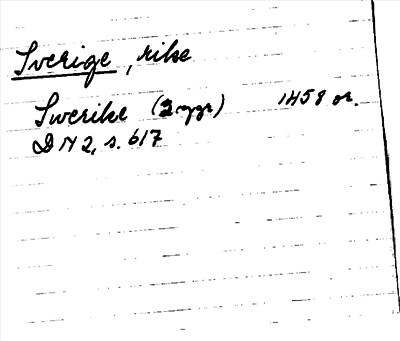 Sverige, rike
Swerike (2 ggr) 1458 or.
DN 2, s. 617